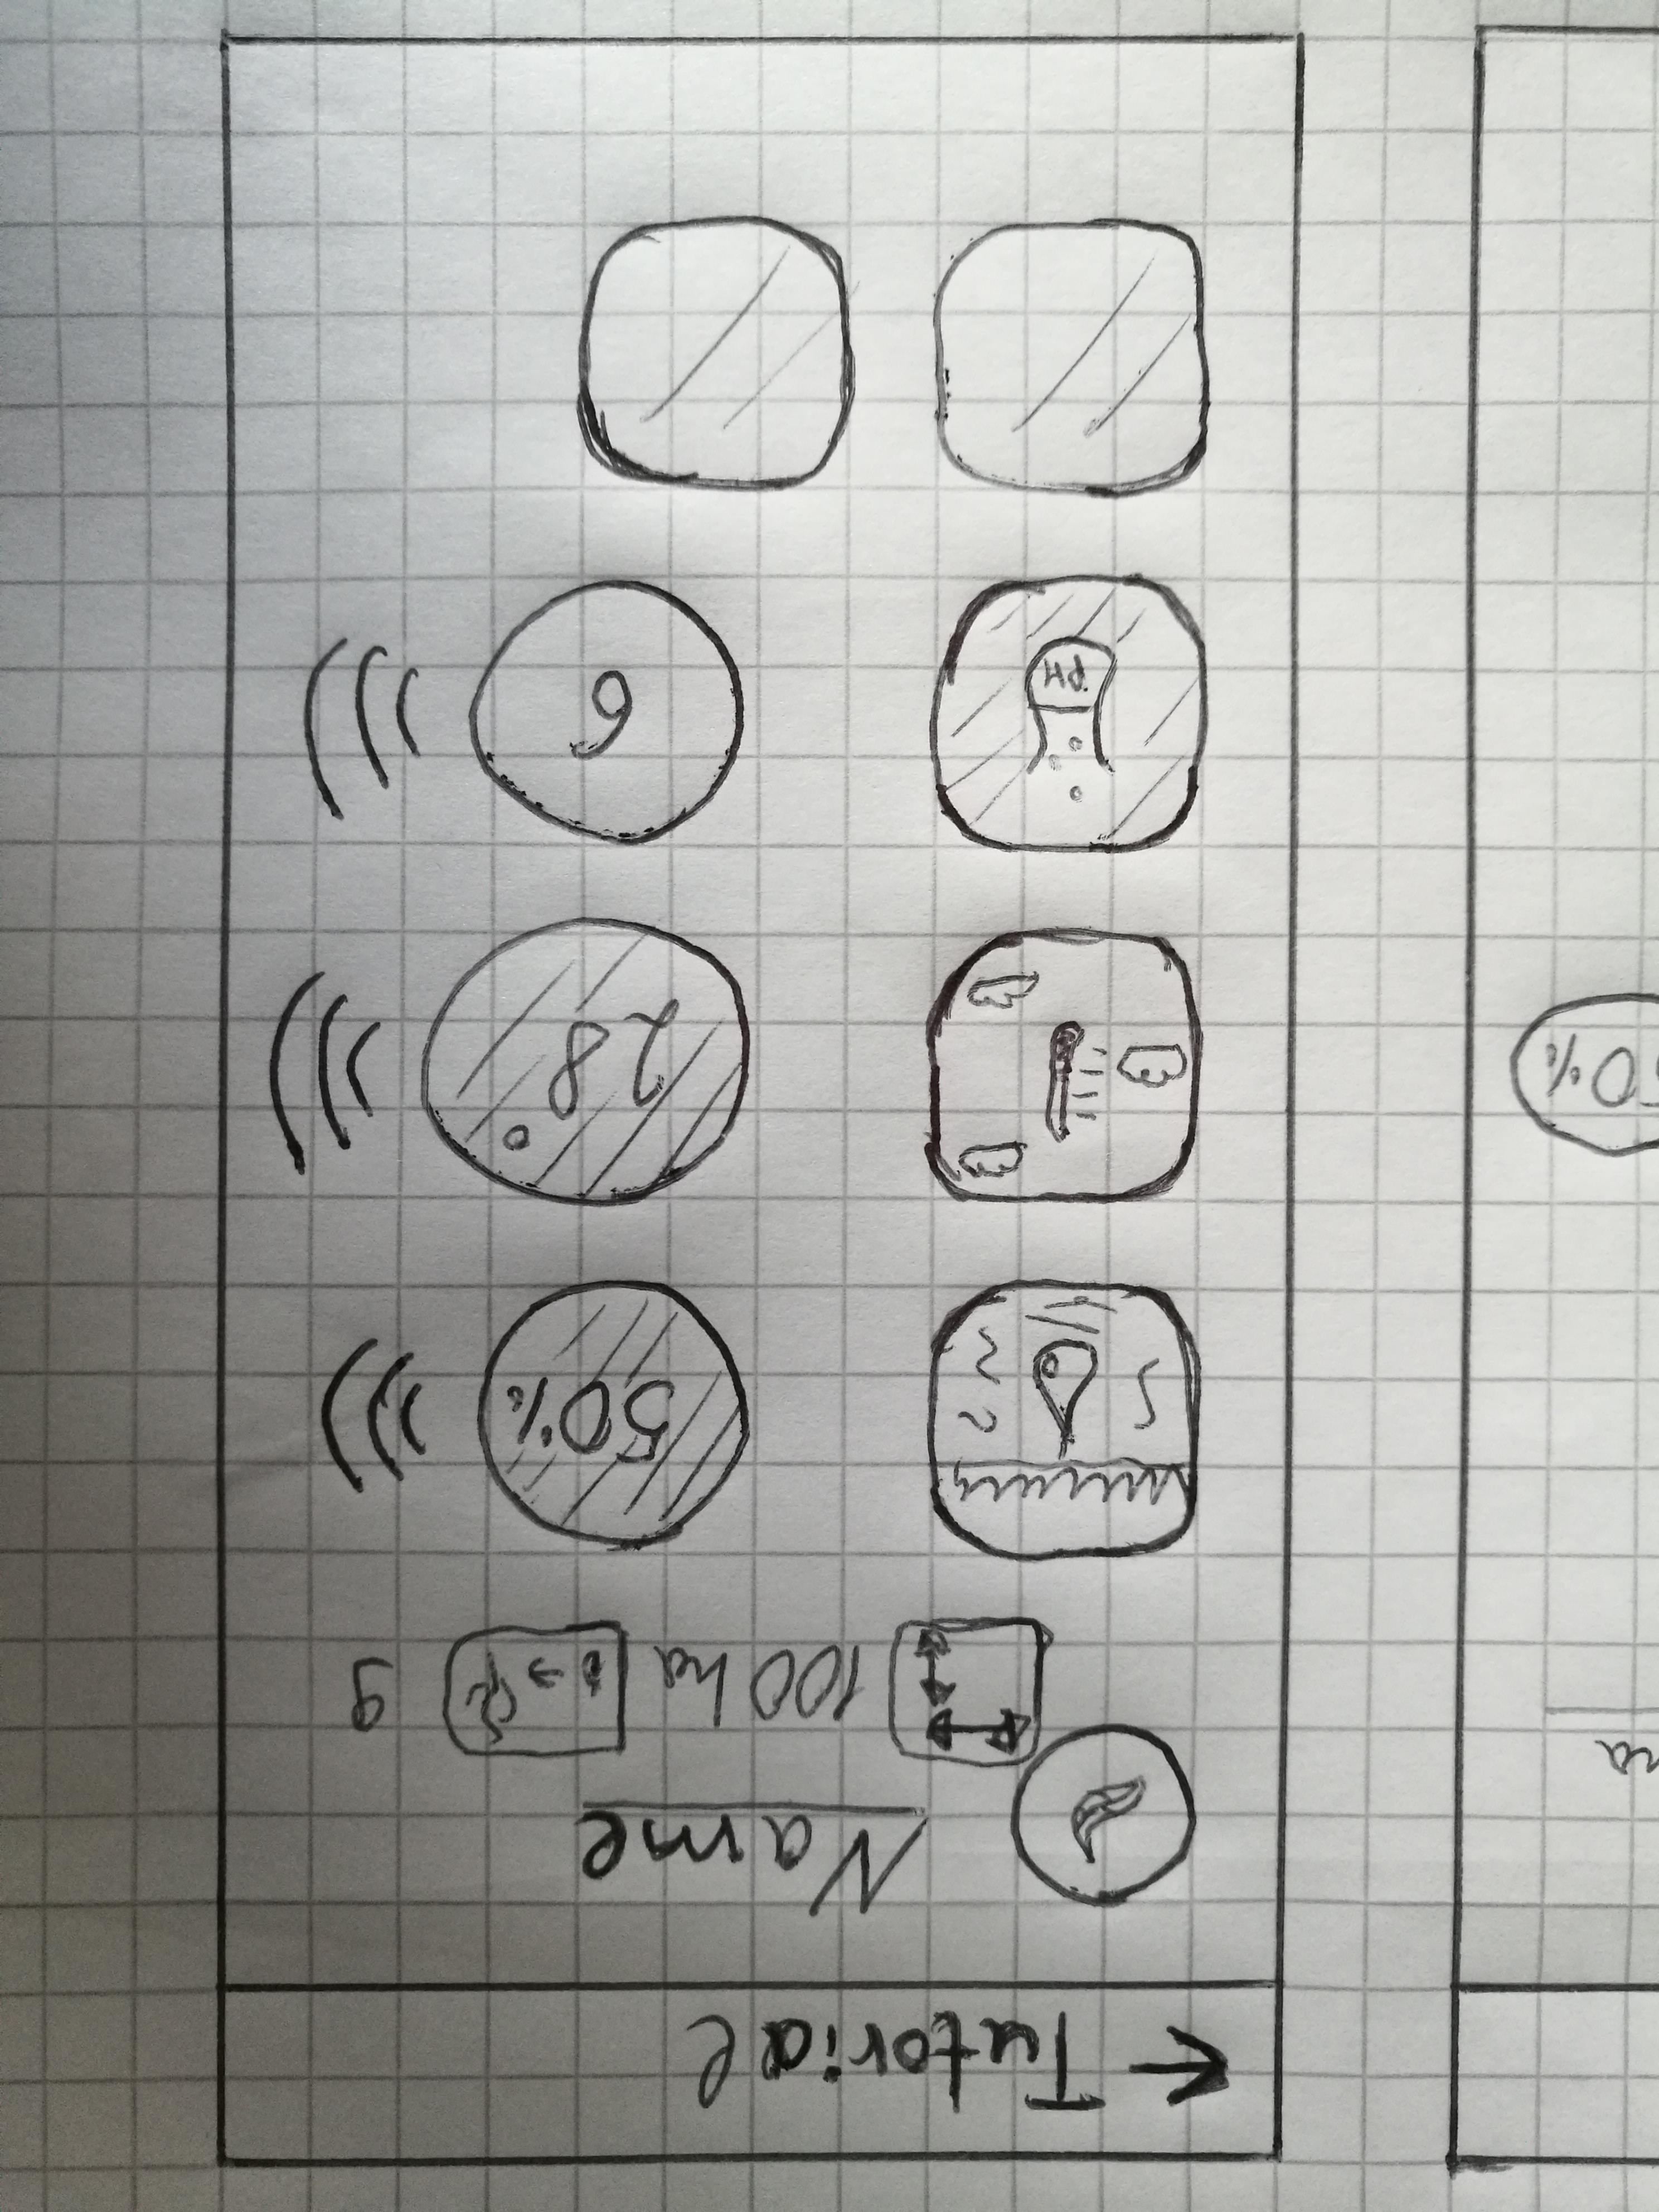 ← Tutorial
Name
100 ha 9
50%
28°
PH 6